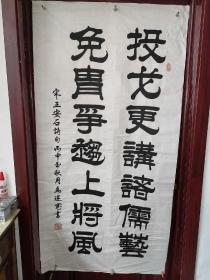 投戈更講諸儒藝
免胄爭趨上將風
宋王安石詩句丙申年秋月馬運憲書